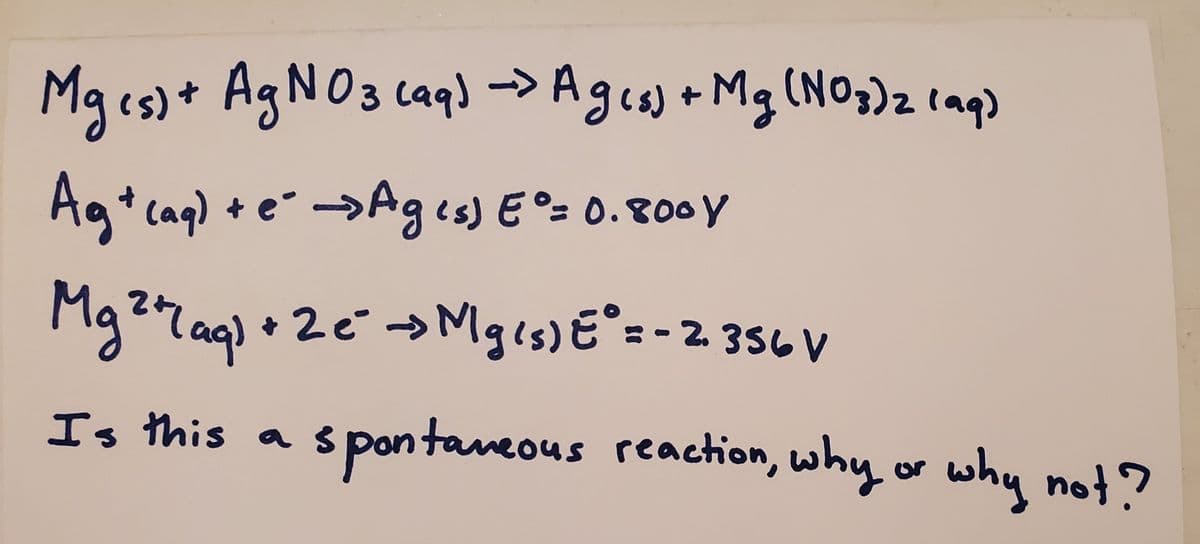 Mg(s) + AgNO3 (aq) → Ag(s) + Mg(NO3)2 (aq)
Ag+(aq) + e- → Ag(s) E°= 0.800V
Mg2+(aq) + 2e- → Mg(s) E°= -2.356V
Is this a spontaneous reaction, why or why not?